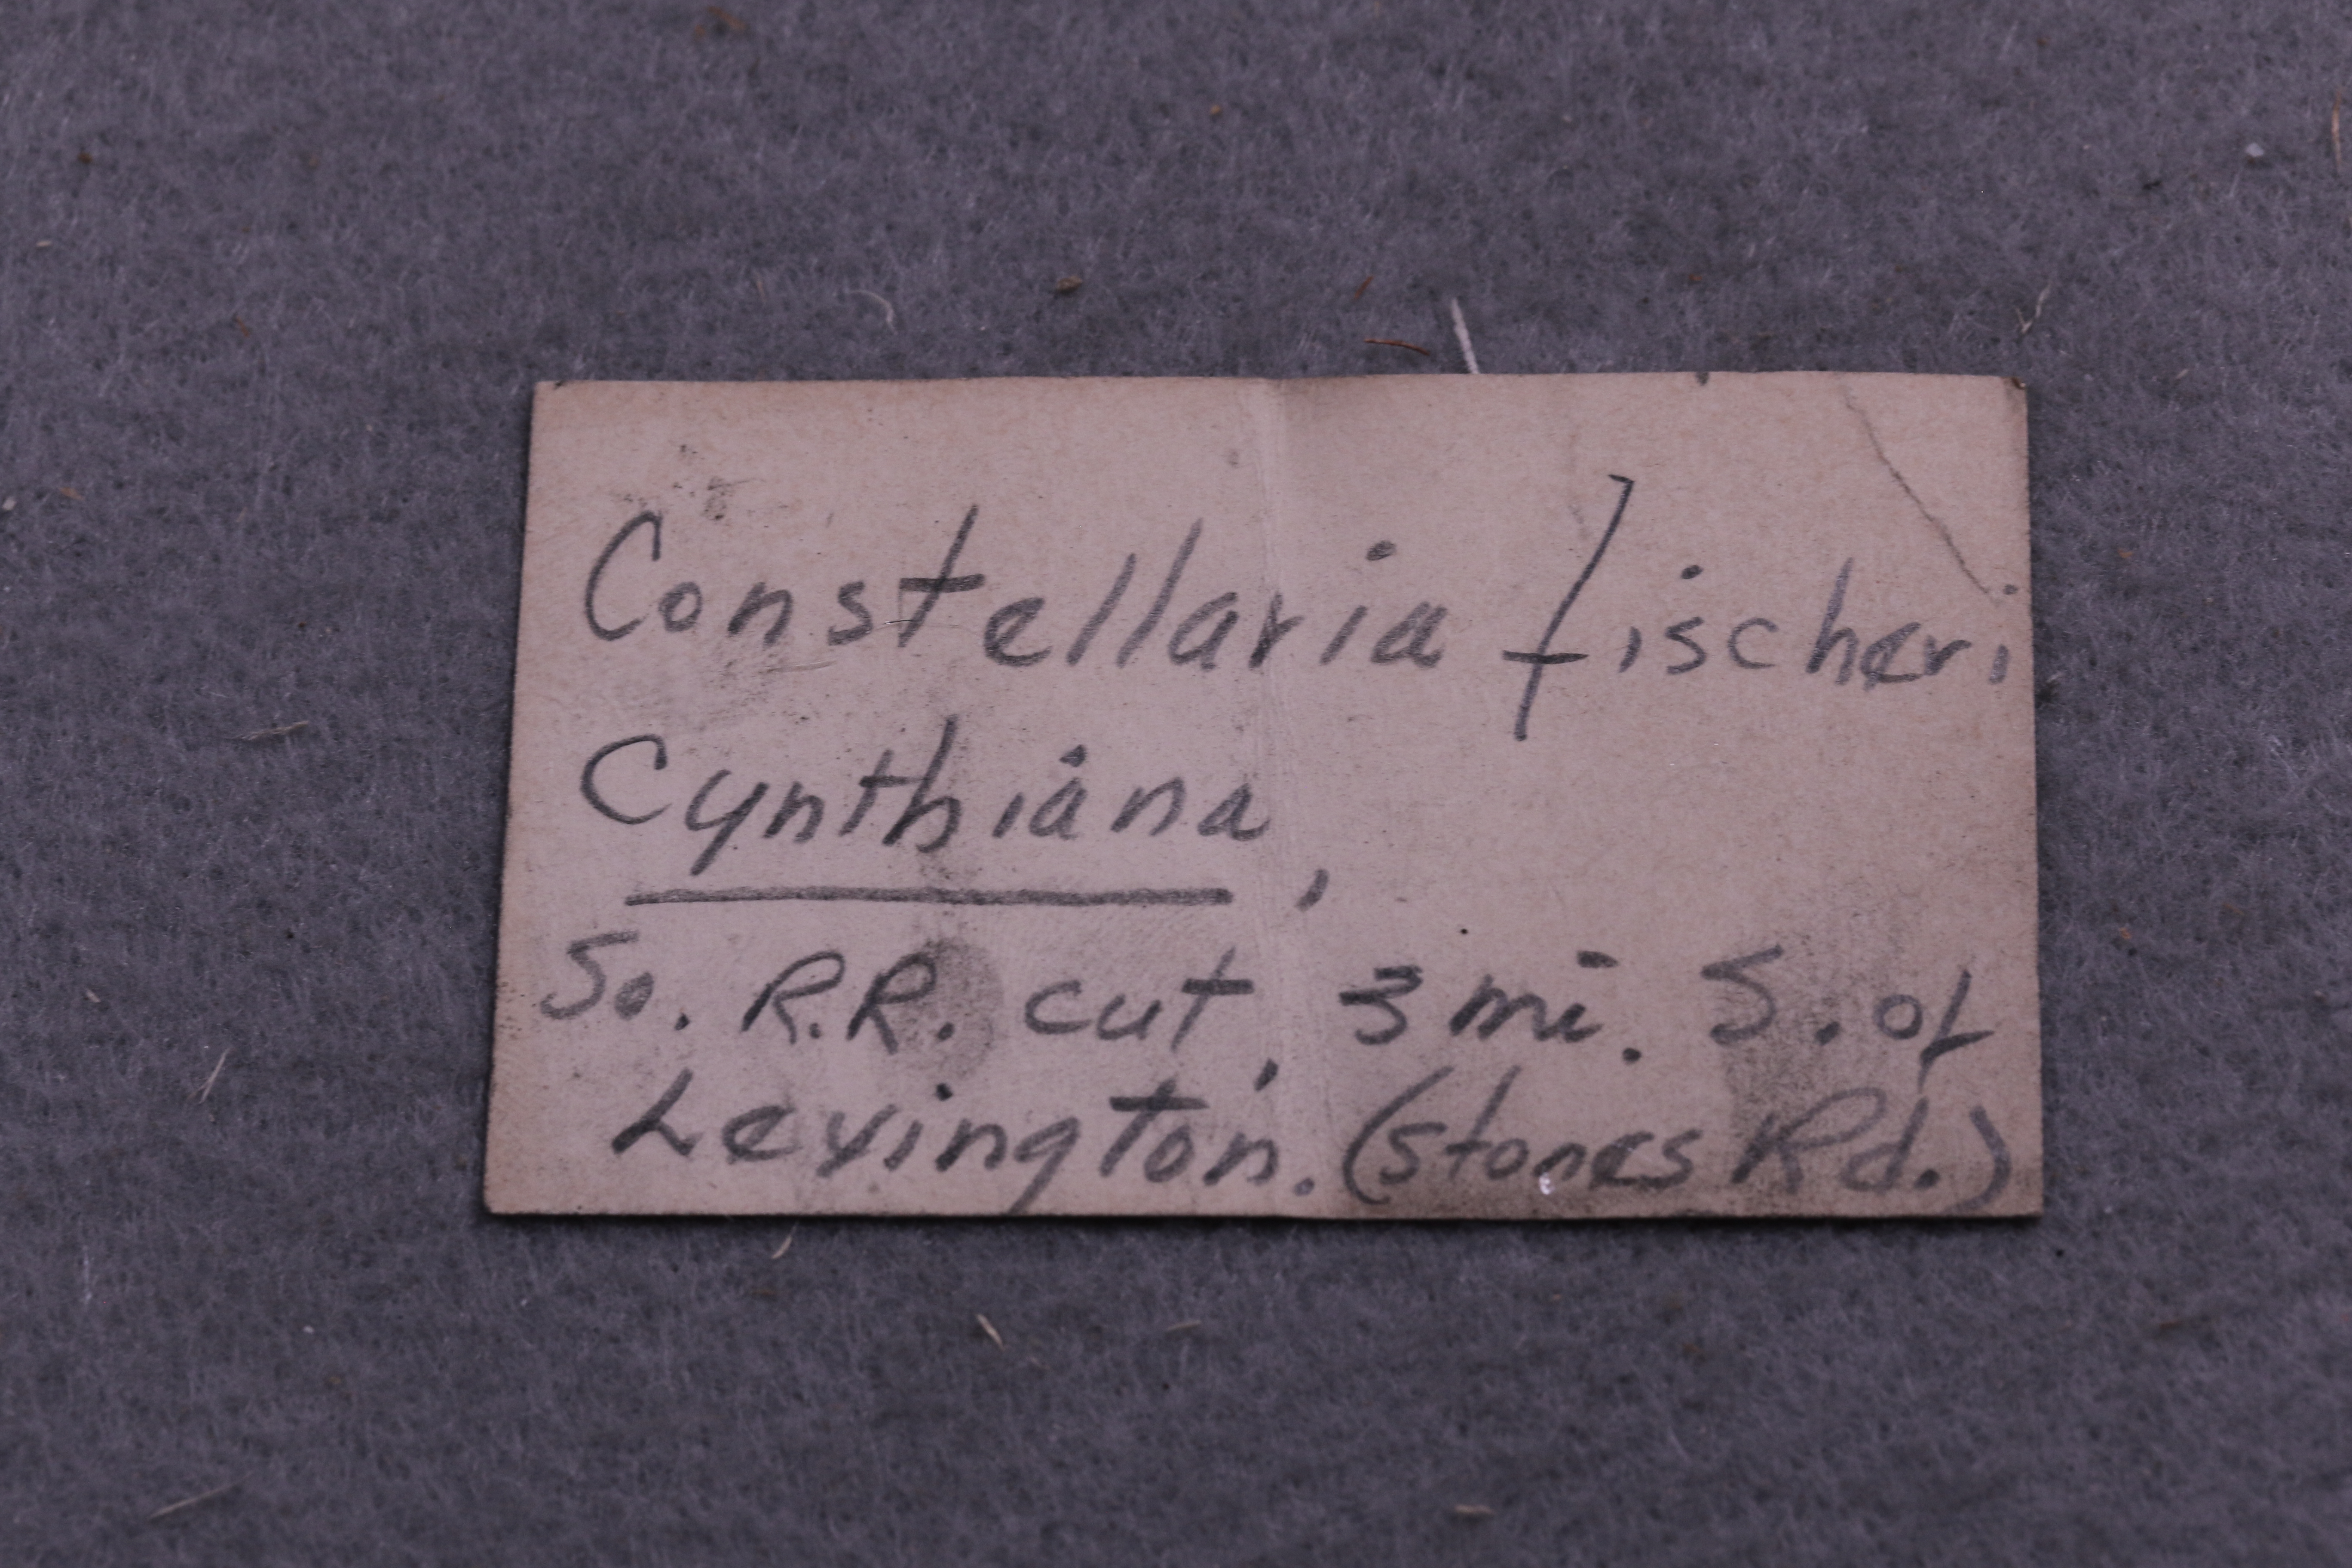 Constellaria fischeri
Cynthiana,
So. R.R. cut, 3 mi. S. of
Lexington. (Stones Rd.)